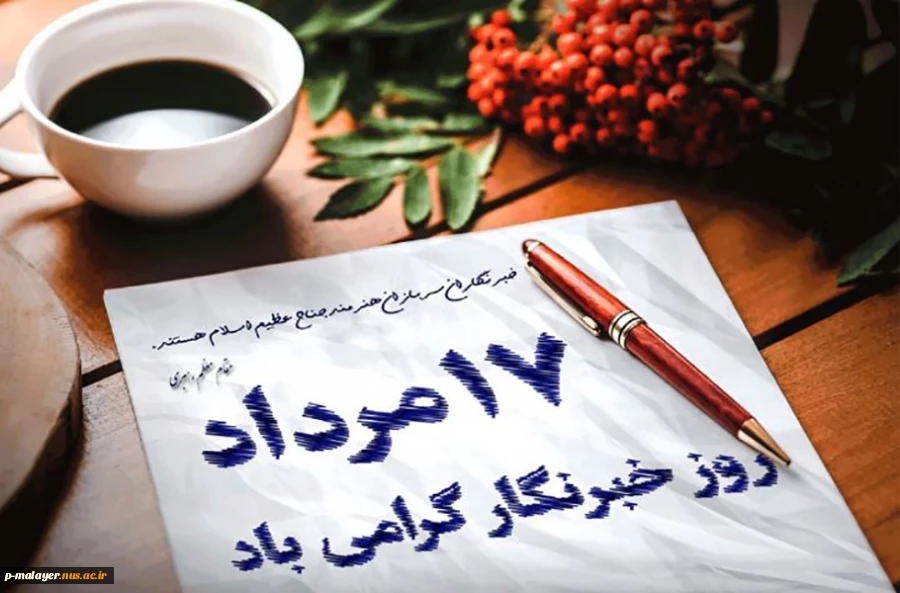 خبرنگاران سربازان هنرمند جناح عظیم اسلام هستند.
مقام معظم رهبری
۱۷مرداد
روز خبرنگار گرامی باد
p-malayer.nus.ac.ir